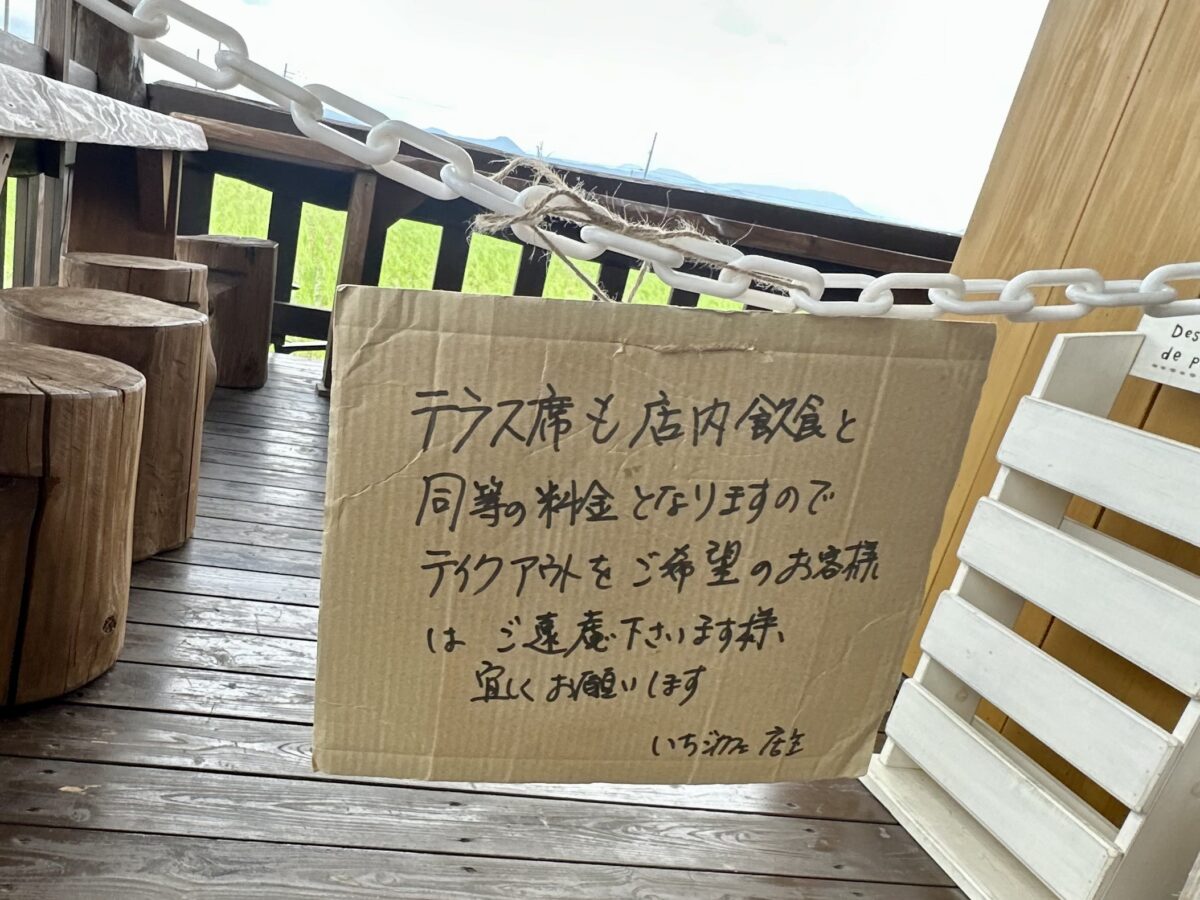 テラス席も店内飲食と
同等の料金となりますので
テイクアウトをご希望のお客様
は ご遠慮下さいます様、
宜しくお願いします
いちごカフェ 店主
Des
de p